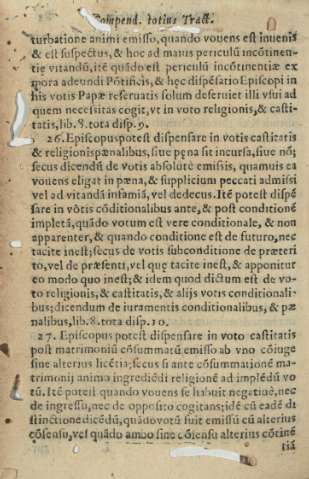 Compend. totius Tract.
turbatione animi emisso, quando vouens est inuenis
& est suspectus, & hoc ad maius periculū incōtinen-
tię vitandū, itē quādo est periculū incōtinentiæ ex
mora adeundi Pōtificis, & hęc dispēsatio Episcopi in
his votis Papæ reseruatis solum deseruiet illi vsui ad
quem necessitas cogit, vt in voto religionis, & casti-
tatis, lib. 8. tota disp. 9.
26. Episcopus potest dispensare in votis castitatis
& religionis pænalibus, siue pęna sit incursa, siue nō;
secus dicendū de votis absolutè emissis, quamuis ea
vouens eligat in pæna, & supplicium peccati admissi
vel ad vitandā infamiā, vel dedecus. Itē potest dispē
sare in vōtis cōditionalibus ante, & post conditionē
impletā, quādo votum est vere conditionale, & non
apparenter, & quando conditione est de futuro, nec
tacite inest; secus de votis subconditione de præteri
to, vel de præsenti, vel quę tacite inest, & apponitur
eo modo quo inest; & idem quod dictum est de vo-
to religionis, & castitatis, & alijs votis conditionali-
bus; dicendum de iuramentis conditionalibus, & pæ
nalibus, lib. 8. tota disp. 10.
27. Episcopus potest dispensare in voto castitatis
post matrimoniū cōsummatū, emisso ab vno cōiuge
sine alterius licētia; secus si ante cōsummationē ma-
trimonij animo ingrediēdi religionē ad implēdū vo
tū. Itē potest quando vouens se habuit negatiuè, nec
de ingressu, nec de opposito cogitans; idē cū eadē di
stinctione dicēdū, quādo votū fuit emissū cū alterius
cōsensu, vel quādo ambo sine cōsensu alterius cōtinē
tiā